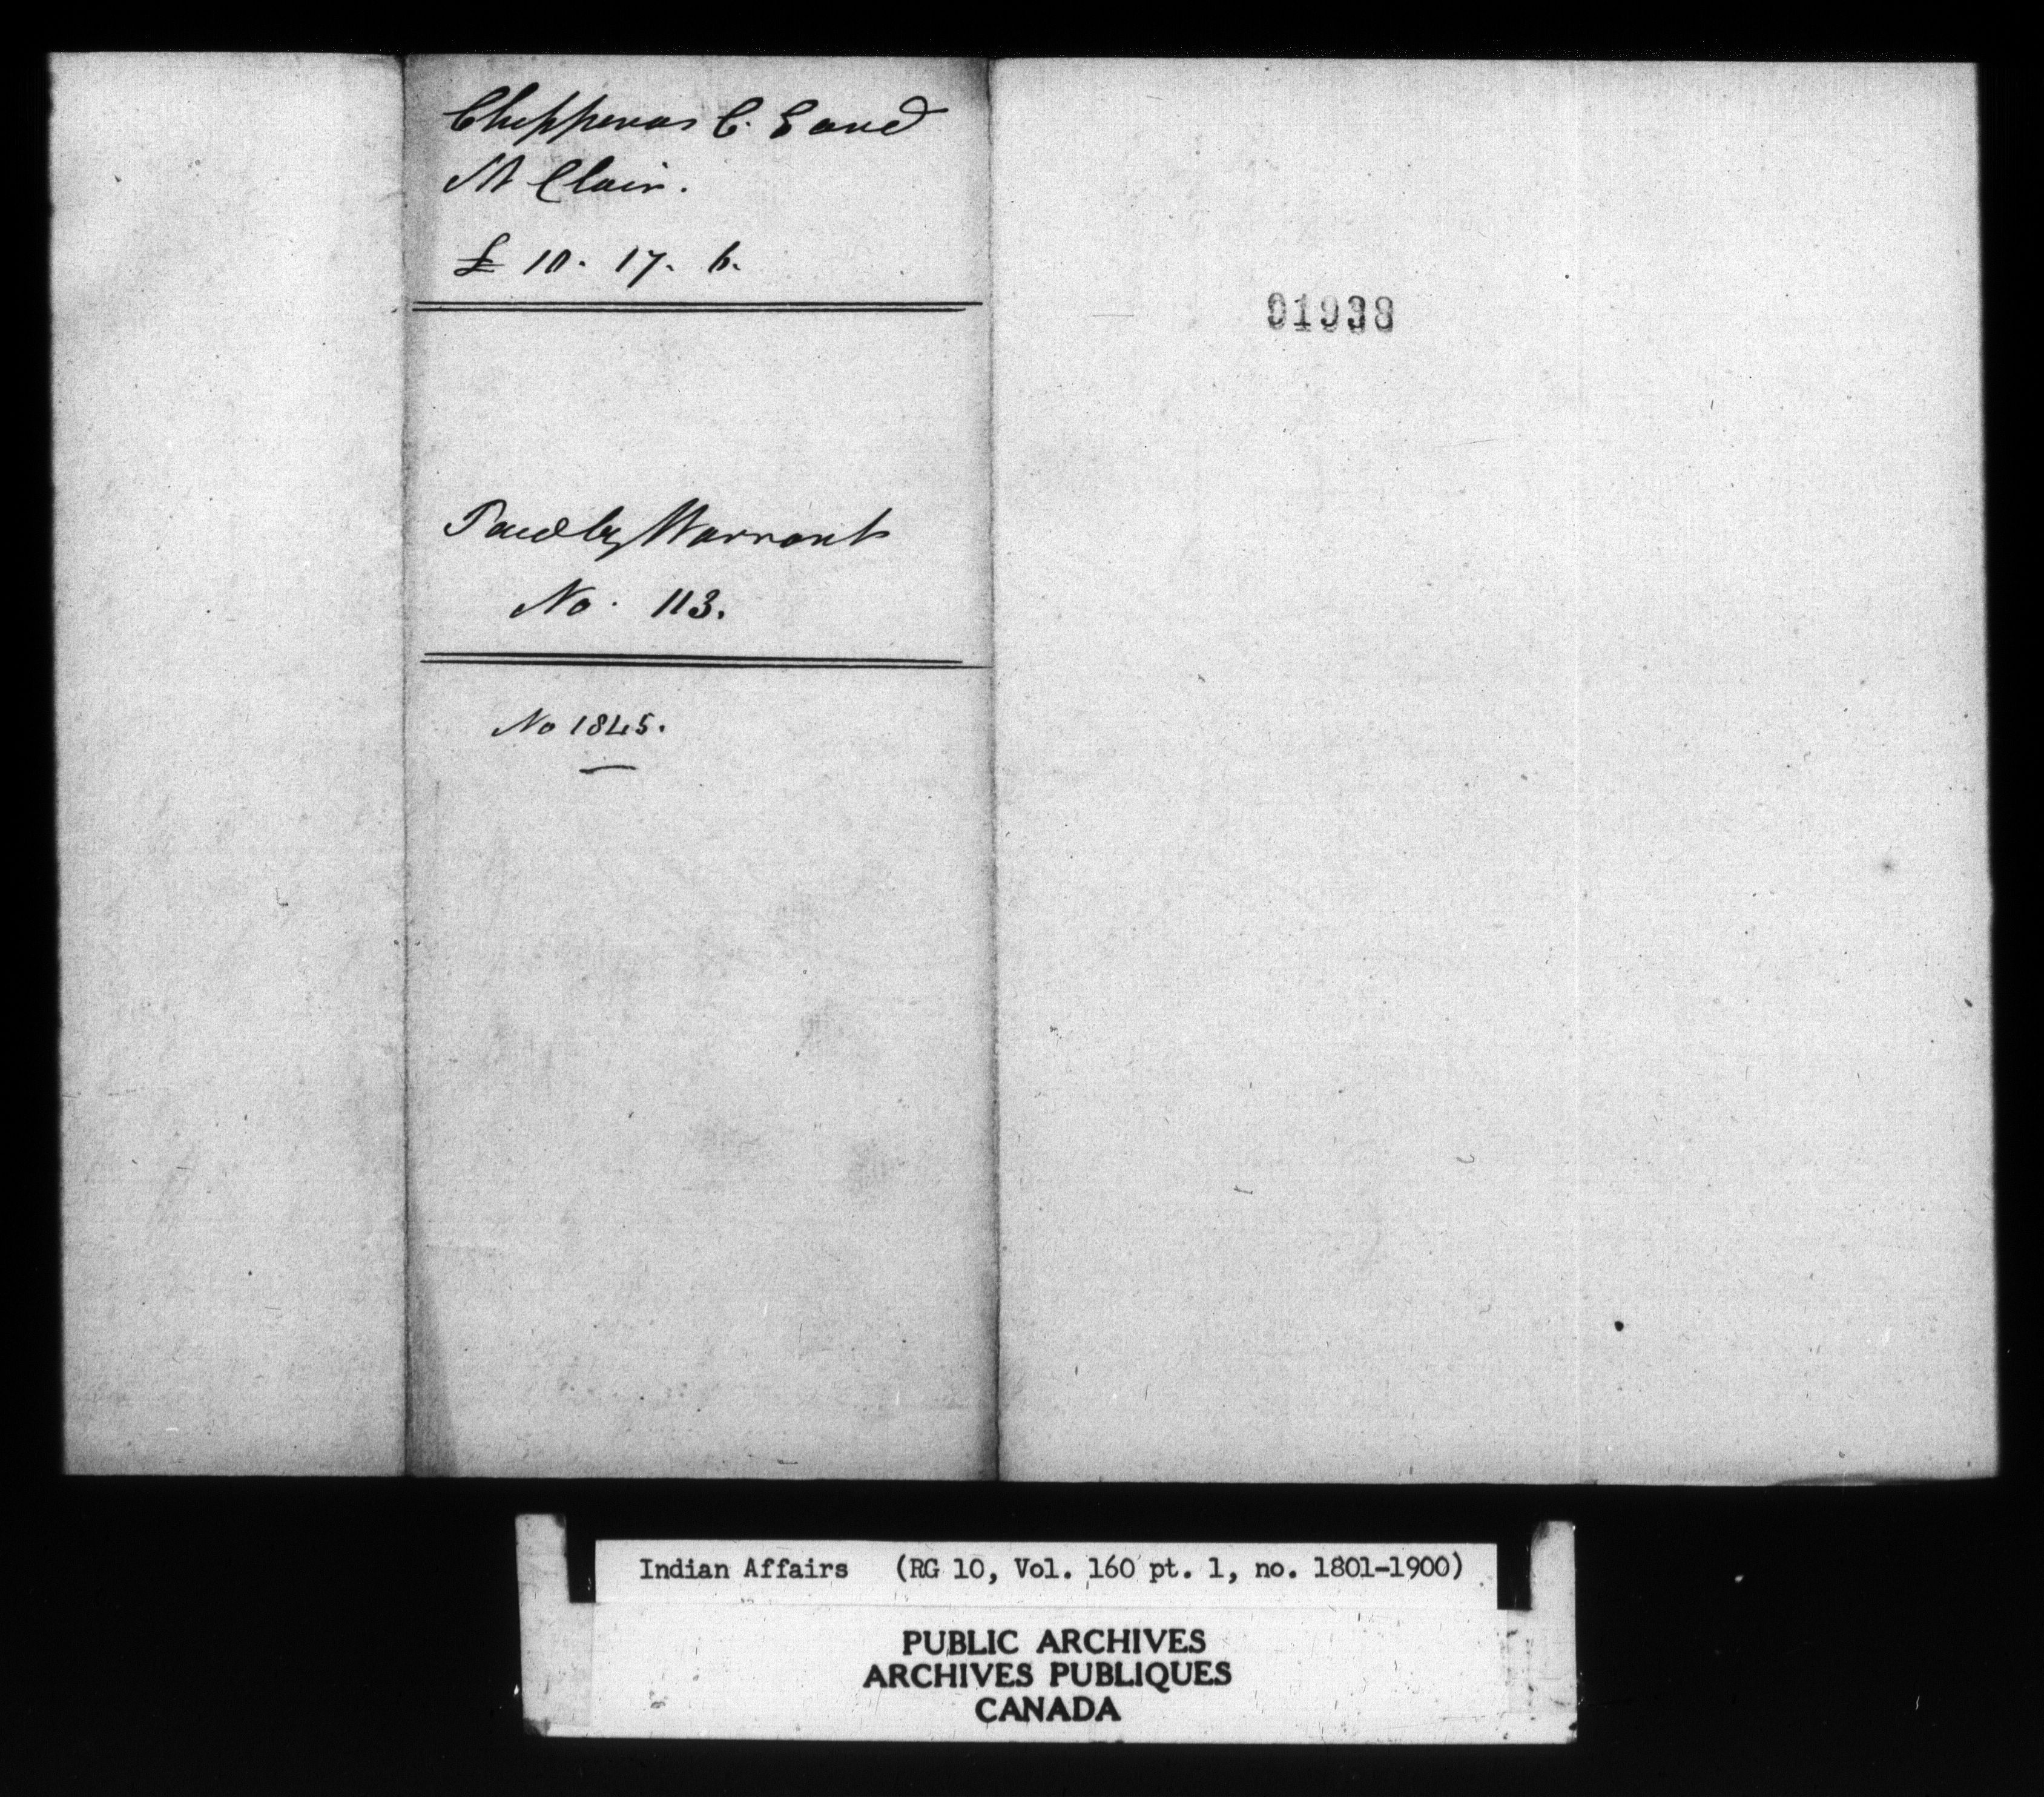 Chippewas C. E and
St Clair.
£ 10. 17. 6.
Paid by Warrant
No. 113.
No 1845.
01938
Indian Affairs (RG 10, Vol. 160 pt. 1, no. 1801-1900)
PUBLIC ARCHIVES
ARCHIVES PUBLIQUES
CANADA